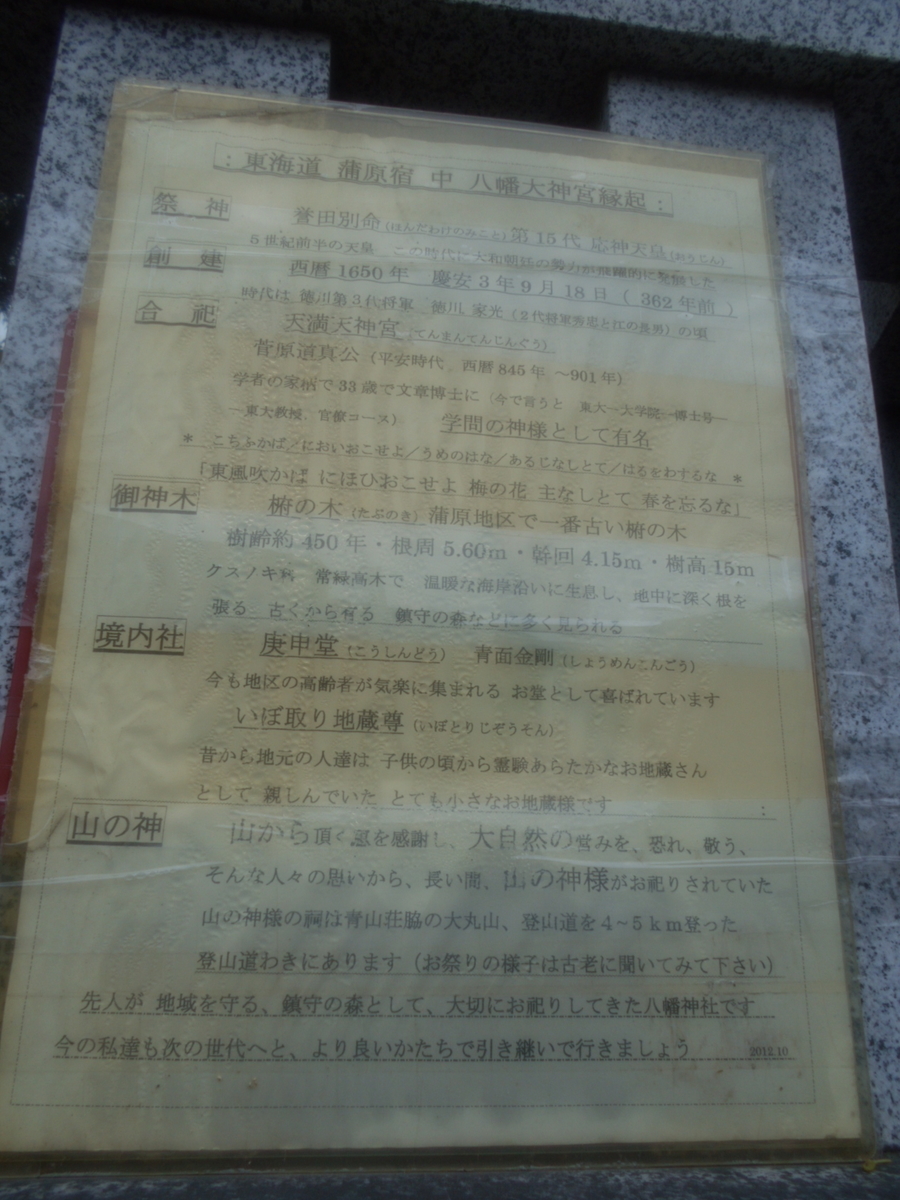 ：東海道 蒲原宿 中 八幡大神宮縁起：
祭 神 誉田別命(ほんだわけのみこと)第15代 応神天皇(おうじん)
5世紀前半の天皇 この時代に大和朝廷の勢力が飛躍的に発展した
創 建 西暦1650年 慶安3年9月18日（362年前）
時代は 徳川第3代将軍 徳川 家光（2代将軍秀忠と江の長男）の頃
合 祀 天満天神宮（てんまんてんじんぐう）
菅原道真公（平安時代 西暦845年 ～901年）
学者の家柄で33歳で文章博士に（今で言うと 東大―大学院―博士号―
―東大教授、官僚コース） 学問の神様として有名
＊ こちふかば／においおこせよ／うめのはな／あるじなしとて／はるをわするな ＊
「東風吹かば にほひおこせよ 梅の花 主なしとて 春を忘るな」
御神木 椨の木（たぶのき）蒲原地区で一番古い椨の木
樹齢約450年・根周5.60m・幹回4.15m・樹高15m
クスノキ科 常緑高木で 温暖な海岸沿いに生息し、地中に深く根を
張る 古くから有る 鎮守の森などに多く見られる
境内社 庚申堂（こうしんどう） 青面金剛（しょうめんこんごう）
今も地区の高齢者が気楽に集まれる お堂として喜ばれています
いぼ取り地蔵尊（いぼとりじぞうそん）
昔から地元の人達は 子供の頃から霊験あらたかなお地蔵さん
として 親しんでいた とても小さなお地蔵様です ：
山の神 山から頂く恵を感謝し、大自然の営みを、恐れ、敬う、
そんな人々の思いから、長い間、山の神様がお祀りされていた
山の神様の祠は青山荘脇の大丸山、登山道を4～5km登った
登山道わきにあります（お祭りの様子は古老に聞いてみて下さい）
先人が 地域を守る、鎮守の森として、大切にお祀りしてきた八幡神社です
今の私達も次の世代へと、より良いかたちで引き継いで行きましょう 2012.10